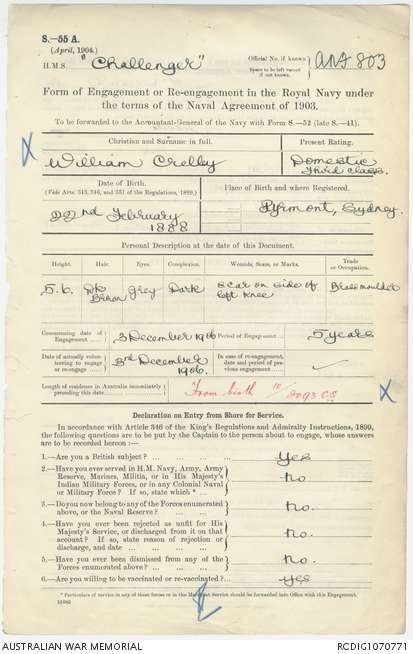 S.—55 A.
(April, 1904.)
H.M.S. "Challenger"
Official No. if known
Space to be left vacant if not known.
ANF 803
Form of Engagement or Re-engagement in the Royal Navy under
the terms of the Naval Agreement of 1903.
To be forwarded to the Accountant-General of the Navy with Form S.—52 (late S.—41).
Christian and Surname in full.
Present Rating.
William Crelley
Domestic
Third class.
Date of Birth.
(Vide Arts. 313, 346, and 351 of the Regulations, 1899.)
Place of Birth and where Registered.
22nd February
1888
Pyrmont, Sydney.
Personal Description at the date of this Document.
Height. Hair. Eyes. Complexion. Wounds, Scars, or Marks. Trade or Occupation.
5.6. Dk Brown Grey Dark scar on side of left knee Brassmoulder
Commencing date of Engagement 3 December 1906 Period of Engagement 5 years
Date of actually volunteering to engage or re-engage 3rd December 1906.
In case of re-engagement, date and period of previous engagement
Length of residence in Australia immediately preceding this date From birth
Declaration on Entry from Shore for Service.
In accordance with Article 346 of the King's Regulations and Admiralty Instructions, 1899,
the following questions are to be put by the Captain to the person about to engage, whose answers
are to be recorded hereon:—
1.—Are you a British subject? Yes
2.—Have you ever served in H.M. Navy, Army, Army
Reserve, Marines, Militia, or in His Majesty's
Indian Military Forces, or in any Colonial Naval
or Military Force? If so, state which * No
3.—Do you now belong to any of the Forces enumerated
above, or the Naval Reserve? No.
4.—Have you ever been rejected as unfit for His
Majesty's Service, or discharged from it on that
account? If so, state reason of rejection or
discharge, and date No.
5.—Have you ever been dismissed from any of the
Forces enumerated above? No.
6.—Are you willing to be vaccinated or re-vaccinated? Yes
* Particulars of service in any of those Forces or in the Service should be forwarded into Office with this Engagement.
AUSTRALIAN WAR MEMORIAL
RCDIG1070771